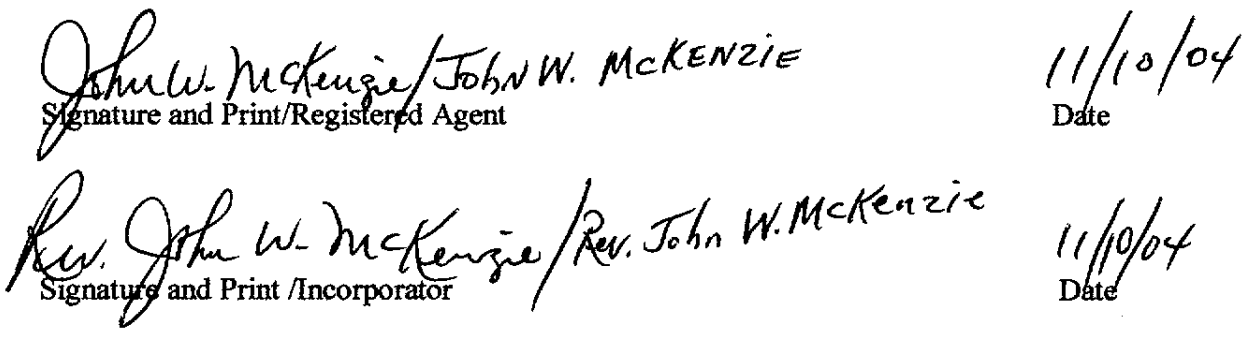 John W. McKenzie/JOHN W. McKENZIE 11/10/04
Signature and Print/Registered Agent Date
Rev. John W. McKenzie/Rev. John W. McKenzie 11/10/04
Signature and Print /Incorporator Date